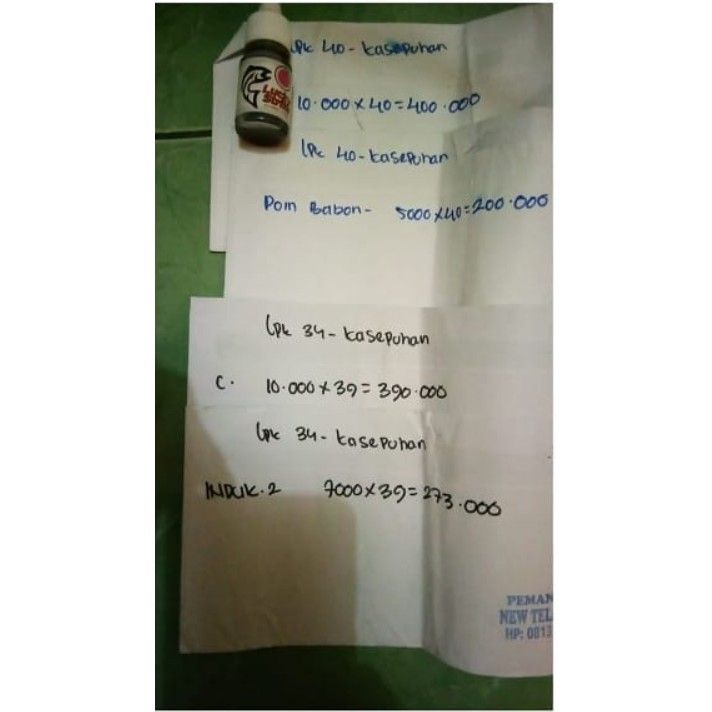 Lpk 40 - kasepuhan
10.000 x 40 = 400.000
Lpk 40 - kasepuhan
Pom Babon - 5000 x 40 = 200.000
Lpk 34 - kasepuhan
C. 10.000 x 39 = 390.000
Lpk 34 - kasepuhan
INDUK.2 7000 x 39 = 273.000
PEMAN
NEW TEL
HP: 0813